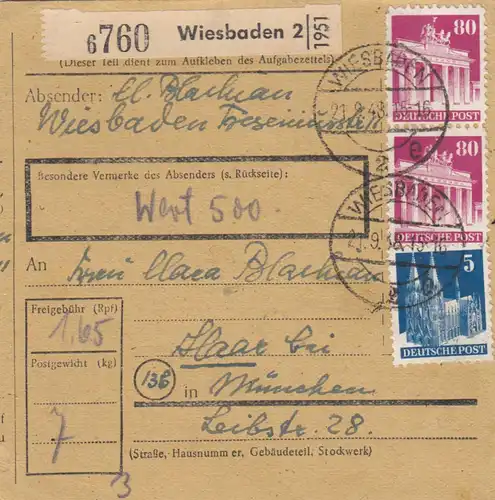 6760 Wiesbaden 2
1951
(Dieser Teil dient zum Aufkleben des Aufgabezettels)
80
DEUTSCHE POST
WIESBADEN
21.9.48.15-16
e
2
Absender: Cl. Blachian
Wiesbaden
Besondere Vermerke des Absenders (s. Rückseite):
Wert 500
80
DEUTSCHE POST
WIESBADEN
An Frau Clara Blachian
5
DEUTSCHE POST
Freigebühr (Rpf)
1,65
Postgewicht (kg)
7
Haar bei
13b
in München
Leibstr. 28.
(Straße, Hausnummer, Gebäudeteil, Stockwerk)
B